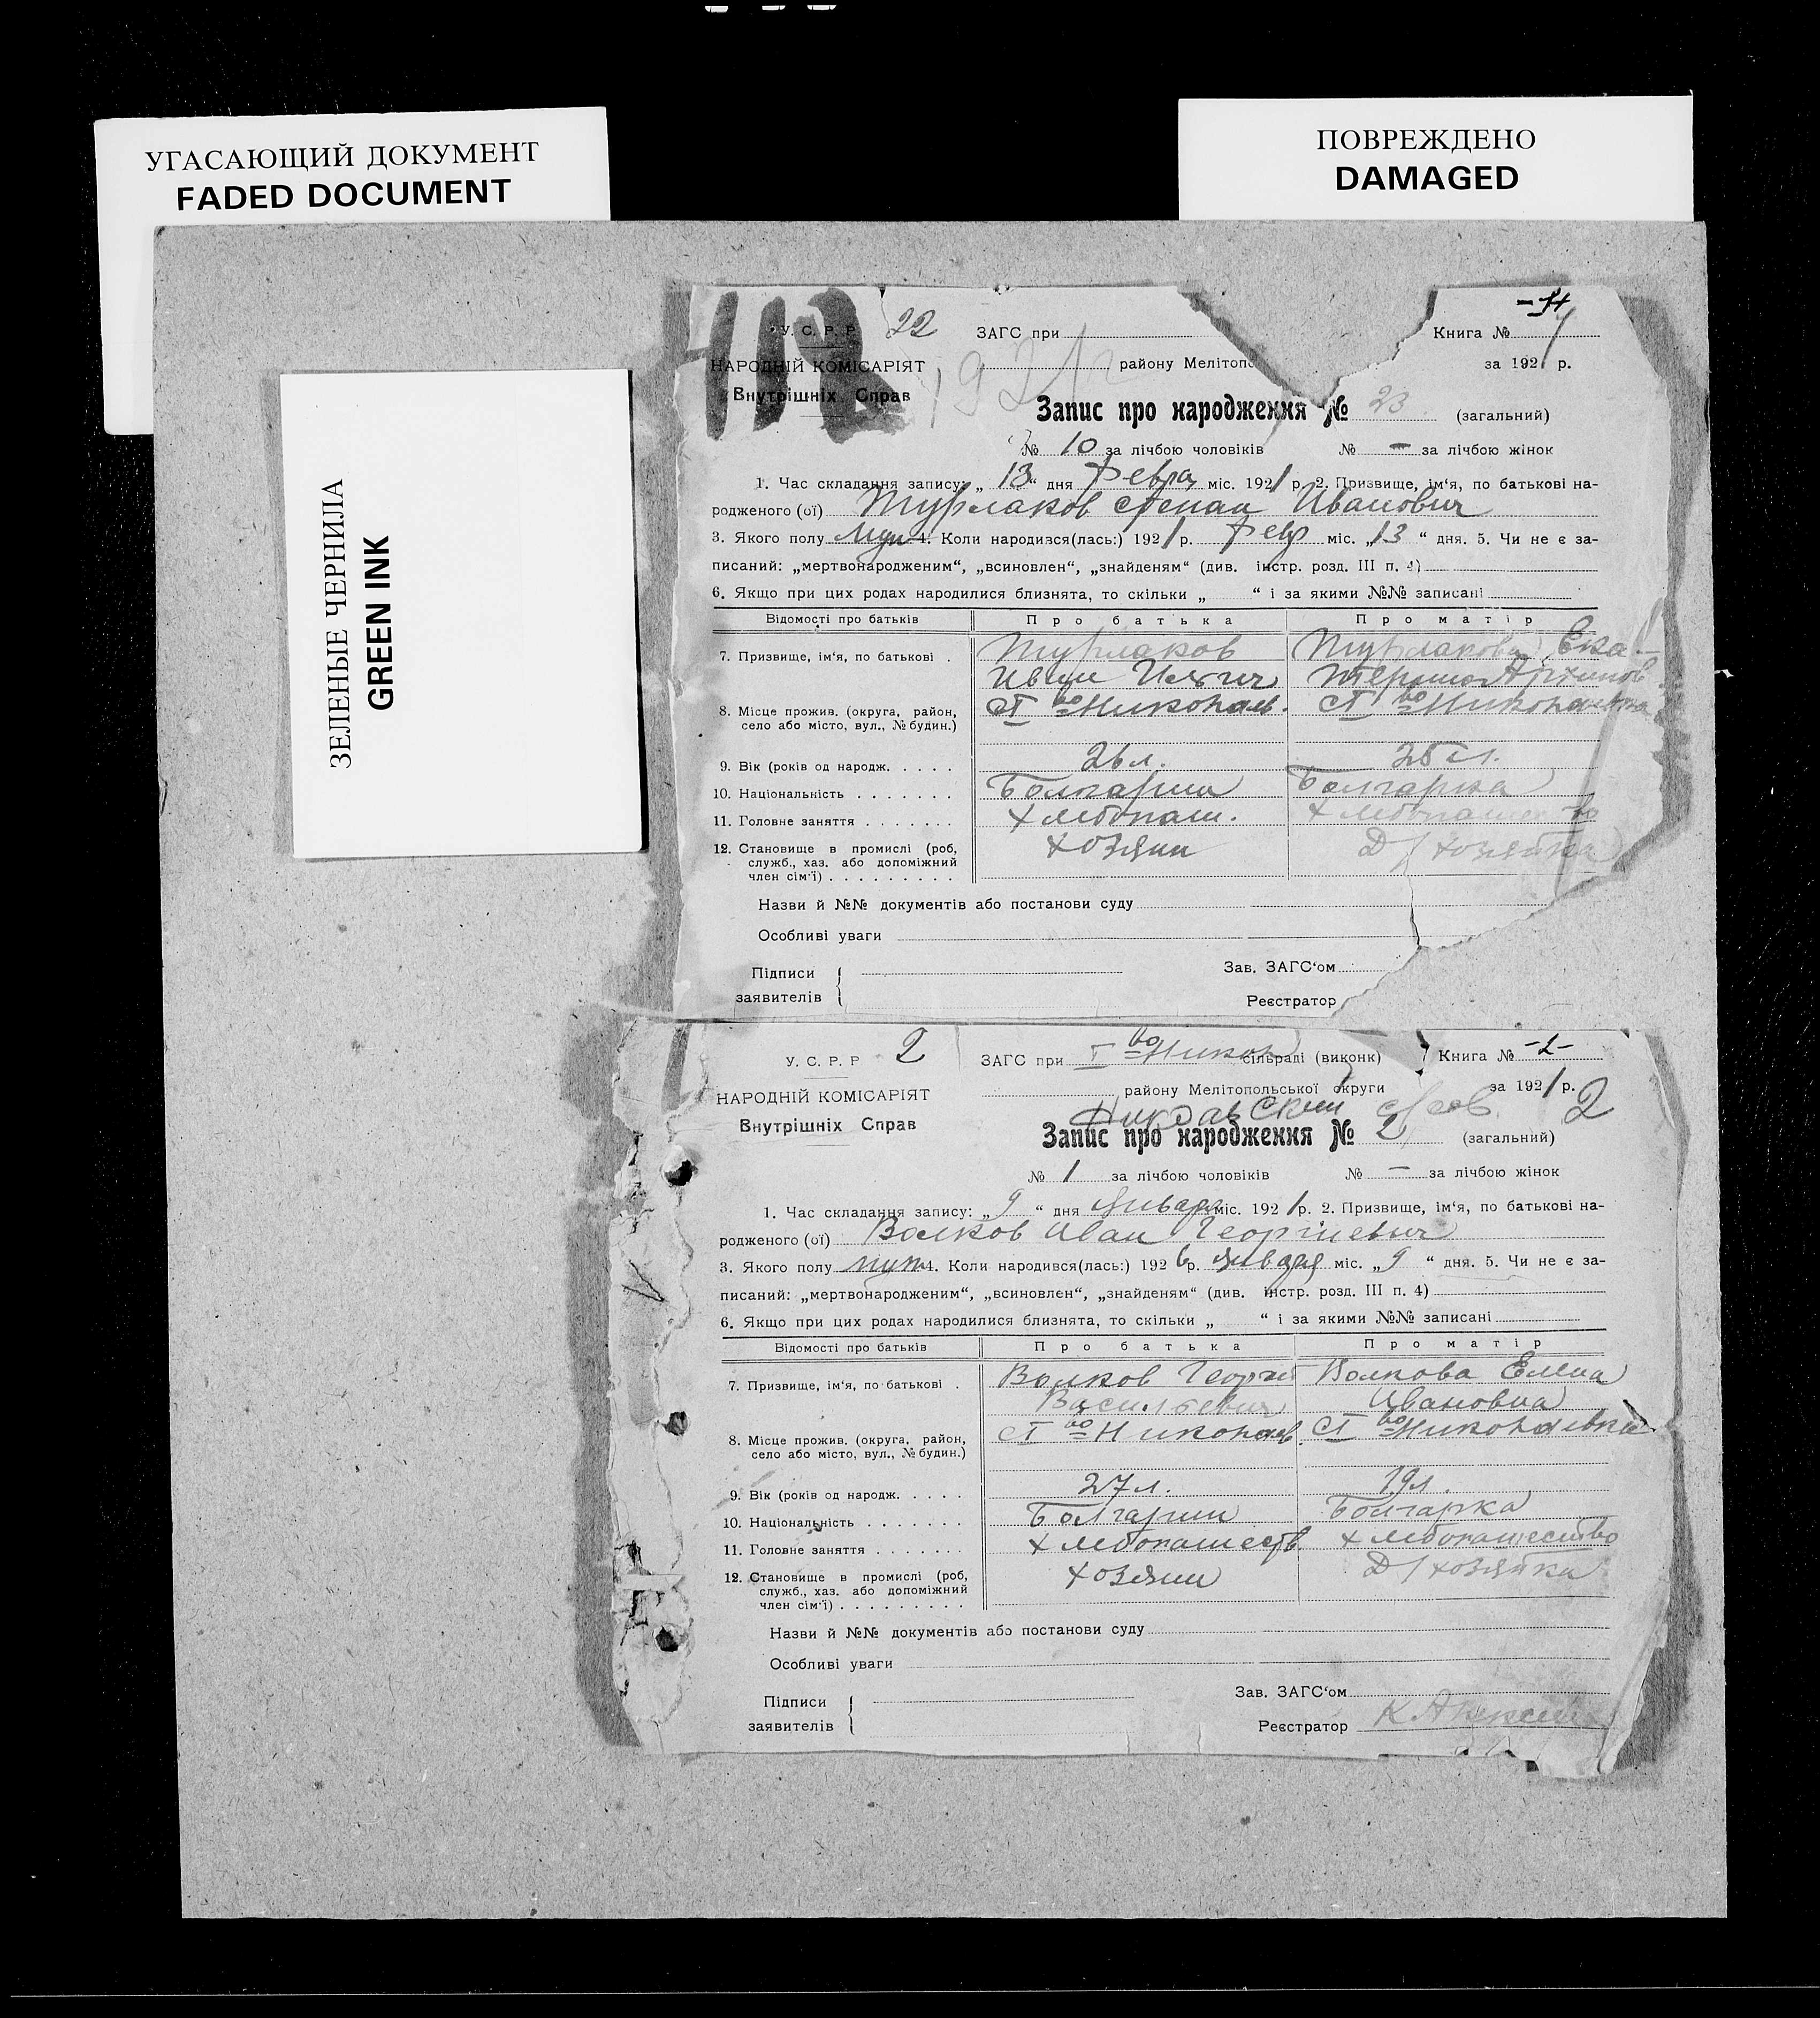 УГАСАЮЩИЙ ДОКУМЕНТ
FADED DOCUMENT
ПОВРЕЖДЕНО
DAMAGED
ЗЕЛЕНЫЕ ЧЕРНИЛА
GREEN INK
118
У. С. Р. Р 22
НАРОДНІЙ КОМІСАРІЯТ
Внутрішніх Справ
1921 г
ЗАГС при
району Мелітопо
Книга № 1
за 1921 р.
Запис про народження № 23 (загальний)
№ 10 за лічбою чоловіків № — за лічбою жінок
1. Час складання запису: „ 13 “ дня Февра міс. 1921 р. 2. Призвище, ім‘я, по батькові на-
родженого (ої) Турлаков Степан Иванович
3. Якого полу Муж 4. Коли народився(лась:) 1921 р. Февр міс. „ 13 “ дня. 5. Чи не є за-
писаний: „мертвонародженим“, „всиновлен“, „знайденям“ (див. інстр. розд. III п. 4)
6. Якщо при цих родах народилися близнята, то скільки „ “ і за якими №№ записані
Відомості про батьків Про батька Про матір
7. Призвище, ім‘я, по батькові . Турлаков Турлакова Ека-
Иван Ильич терина
8. Місце прожив. (округа, район, І во Николаев. І во Николаевка
село або місто, вул., № будин.)
9. Вік (років од народж. . . . . 26 л. 25 л.
10. Національність . . . . . . . Болгарин Болгарка
11. Головне заняття . . . . . . . Хлебопаш. Хлебопашество
12. Становище в промислі (роб, хозяин Д/хозяйка
служб., хаз. або допоміжний
член сім‘ї) . . . . . . . . .
Назви й №№ документів або постанови суду
Особливі уваги
Підписи Зав. ЗАГС‘ом
заявителів Реєстратор
У. С. Р. Р 2
НАРОДНІЙ КОМІСАРІЯТ
Внутрішніх Справ
ЗАГС при І во Никол сільраді (виконк) Книга № -2-
району Мелітопольської округи за 1921 р. 2
Запис про народження № 2 (загальний)
№ 1 за лічбою чоловіків № — за лічбою жінок
1. Час складання запису: „ 9 “ дня Января міс. 1921 р. 2. Призвище, ім‘я, по батькові на-
родженого (ої) Волков Иван Георгиевич
3. Якого полу муж 4. Коли народився(лась:) 192 р. января міс. „ 9 “ дня. 5. Чи не є за-
писаний: „мертвонародженим“, „всиновлен“, „знайденям“ (див. інстр. розд. III п. 4)
6. Якщо при цих родах народилися близнята, то скільки „ “ і за якими №№ записані
Відомості про батьків Про батька Про матір
7. Призвище, ім‘я, по батькові . Волков Георгий Волкова Елена
Васильевич Ивановна
8. Місце прожив. (округа, район, І во Николаев. І во Николаевка
село або місто, вул., № будин.)
9. Вік (років од народж. . . . . 27 л. 19 л.
10. Національність . . . . . . . Болгарин Болгарка
11. Головне заняття . . . . . . . Хлебопашеств. Хлебопашество
12. Становище в промислі (роб, хозяин Д/хозяйка
служб., хаз. або допоміжний
член сім‘ї) . . . . . . . . .
Назви й №№ документів або постанови суду
Особливі уваги
Підписи Зав. ЗАГС‘ом
заявителів Реєстратор